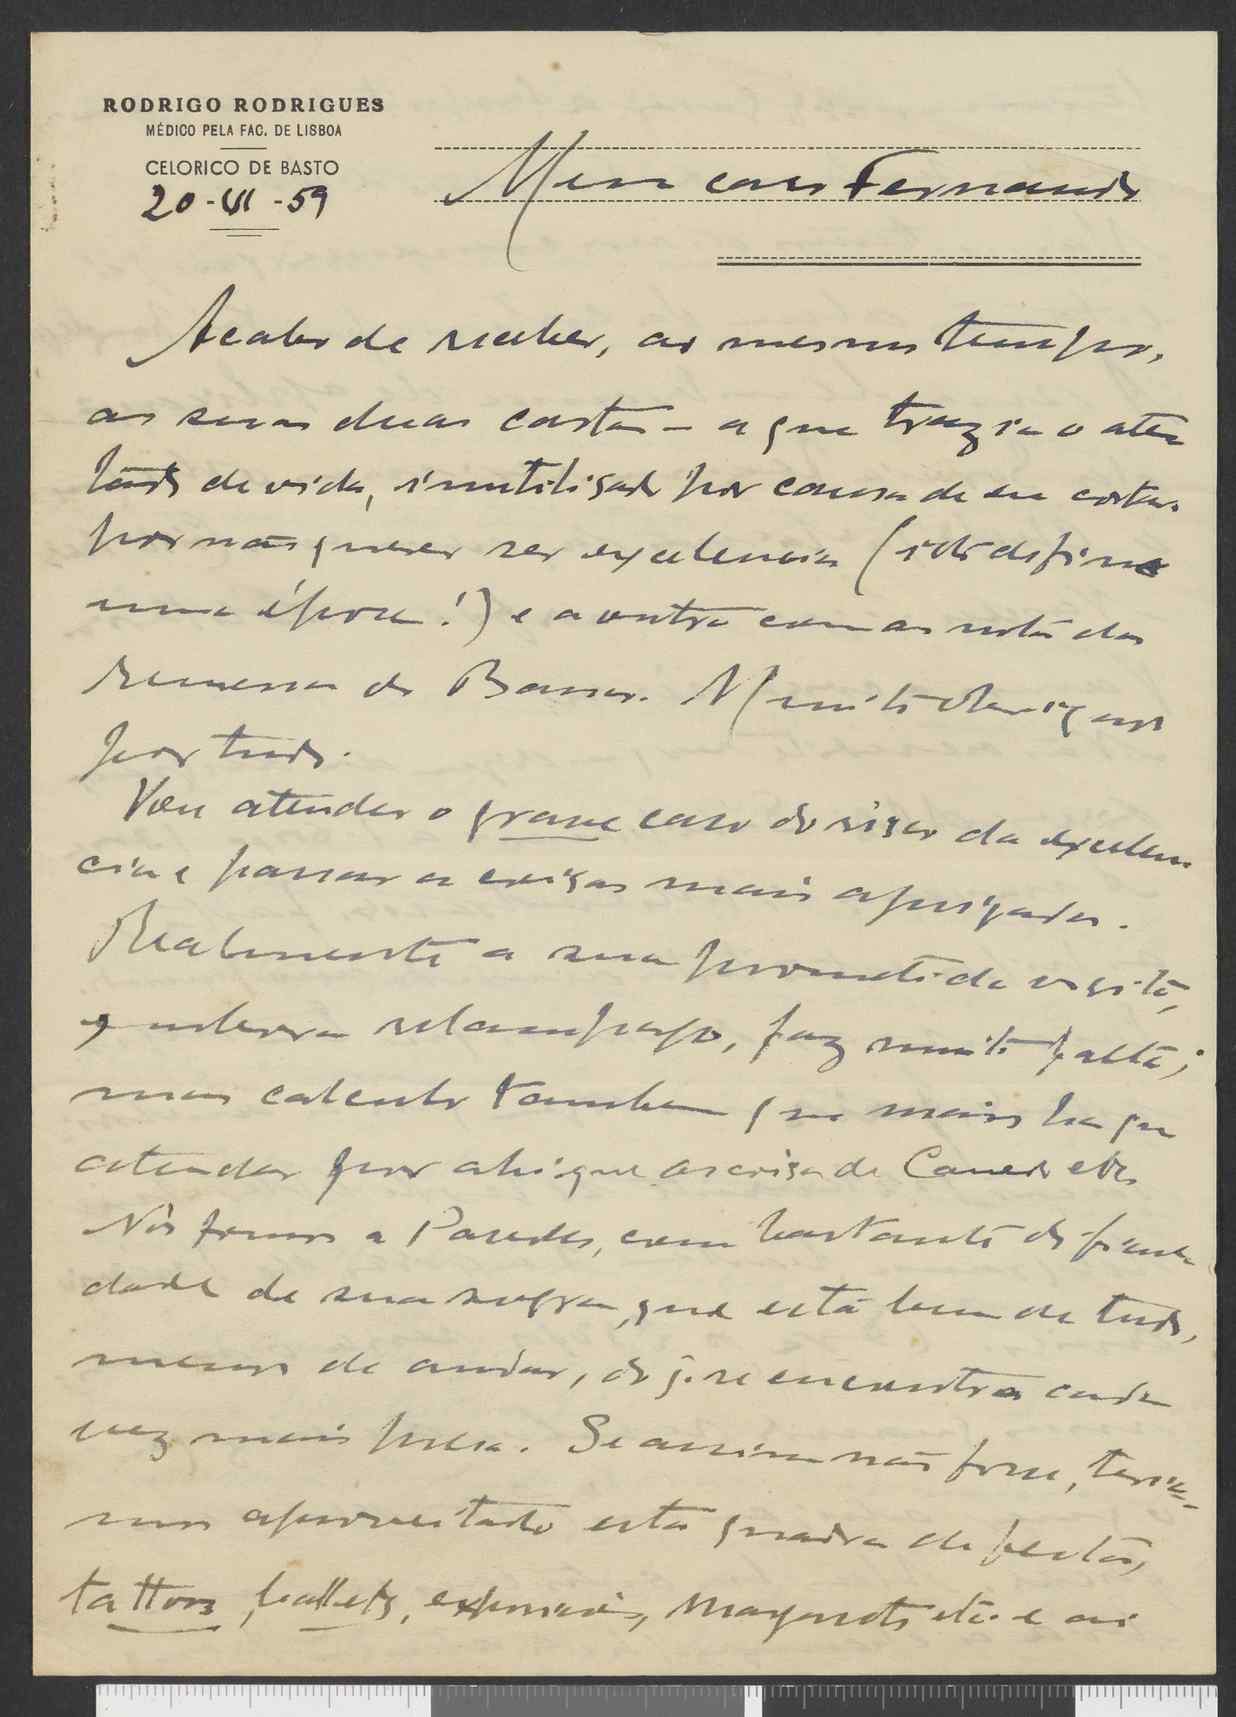 RODRIGO RODRIGUES
MÉDICO PELA FAC. DE LISBOA
CELORICO DE BASTO
20-VI-59
Meu caro Fernando
Acabo de receber, ao mesmo tempo,
as suas duas cartas – a que trazia o ates
tado de vida, inutilisado por causa de eu cortar
por não querer ser excelencia (isto define
uma época!) e a outra com as notas das
remessas do Banco. Muito obrigado
por tudo.
Vou atender o grave caso do risco da excelen
cia e passar a coisas mais apuradas.
Realmente a sua prometida visita,
embora relampago, faz muita falta;
mas calculo tambem que mais ha que
atender por ahi que as coisas de Canedo etc.
Nós fomos a Paredes, com bastante dificul
dade de sua sogra, que está bem de tudo,
menos de andar, do q. se encontra cada
vez mais presa. Se assim não fosse, teria-
mos aproveitado esta quadra de festas,
tattoos, ballets, exposições, Mayonets etc. e ai